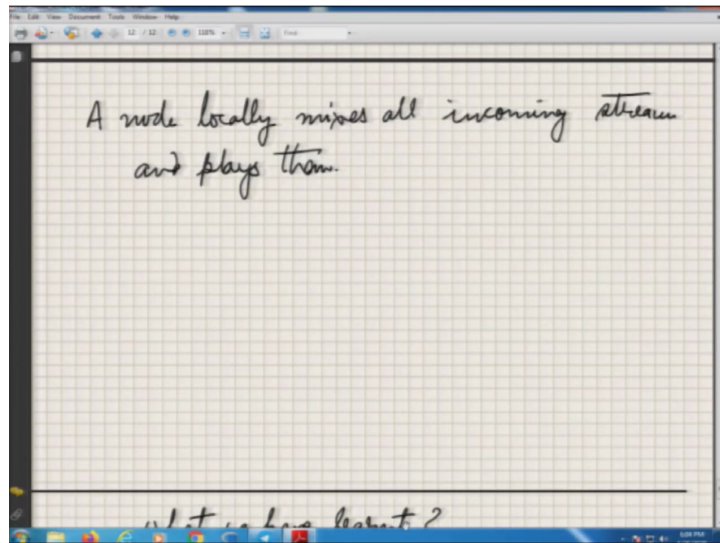 File Edit View Document Tools Window Help
12 / 12 110% Find
A node locally mixes all incoming stream
and plays them.
what we have learnt?
5:08 PM